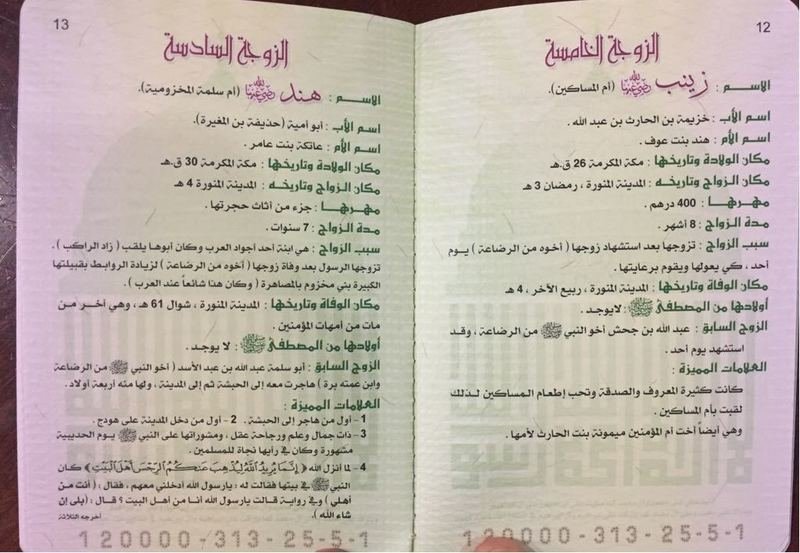 12
الزوجة الخامسة
الاسم : زينب رضي الله عنها (أم المساكين).
اسم الأب : خزيمة بن الحارث بن عبد الله .
اسم الأم : هند بنت عوف .
مكان الولادة وتاريخها : مكة المكرمة 26 ق.هـ
مكان الزواج وتاريخه : المدينة المنورة ، رمضان 3 هـ
مهرها : 400 درهم .
مدة الزواج : 8 أشهر .
سبب الزواج : تزوجها بعد استشهاد زوجها ( أخوه من الرضاعة ) يوم
أحد ، كي يعولها ويقوم برعايتها .
مكان الوفاة وتاريخها : المدينة المنورة ، ربيع الآخر ، 4 هـ
أولادها من المصطفى ﷺ : لايوجد .
الزوج السابق : عبد الله بن جحش أخو النبي ﷺ من الرضاعة ، وقد
استشهد يوم أحد .
العلامات المميزة :
كانت كثيرة المعروف والصدقة وتحب إطعام المساكين لذلك
لقبت بأم المساكين .
وهي أيضاً أخت أم المؤمنين ميمونة بنت الحارث لأمها .
120000-313-25-5-1
13
الزوجة السادسة
الاسم : هند رضي الله عنها (أم سلمة المخزومية).
اسم الأب : أبو أمية (حذيفة بن المغيرة).
اسم الأم : عاتكة بنت عامر .
مكان الولادة وتاريخها : مكة المكرمة 30 ق.هـ
مكان الزواج وتاريخه : المدينة المنورة 4 هـ
مهرها : جزء من أثاث حجرتها .
مدة الزواج : 7 سنوات .
سبب الزواج : هي ابنة أحد أجواد العرب وكان أبوها يلقب ( زاد الراكب ) .
تزوجها الرسول بعد وفاة زوجها ( أخوه من الرضاعة ) لزيادة الروابط بقبيلتها
الكبيرة بني مخزوم بالمصاهرة ( وكان هذا شائعاً عند العرب ) .
مكان الوفاة وتاريخها : المدينة المنورة ، شوال 61 هـ ، وهي آخر من
مات من أمهات المؤمنين .
أولادها من المصطفى ﷺ : لا يوجد .
الزوج السابق : أبو سلمة عبد الله بن عبد الأسد ( أخو النبي ﷺ من الرضاعة
وابن عمته برة ) هاجرت معه إلى الحبشة ثم إلى المدينة ، ولها منه أربعة أولاد .
العلامات المميزة :
1 - أول من هاجر إلى الحبشة . 2 - أول من دخل المدينة على هودج .
3 - ذات جمال وعلم ورجاحة عقل ، ومشوراتها على النبي ﷺ يوم الحديبية
مشهورة وكان في رأيها نجاة للمسلمين .
4 - لما أنزل الله ﴿ إِنَّمَا يُرِيدُ اللَّهُ لِيُذْهِبَ عَنكُمُ الرِّجْسَ أَهْلَ الْبَيْتِ ﴾ كان
النبي ﷺ في بيتها فقالت له : يارسول الله أدخلني معهم ، فقال : ( أنت من
أهلي ) وفي رواية قالت يارسول الله أنا من أهل البيت ؟ قال : (بلى إن
شاء الله ). أخرجه الثلاثة
120000-313-25-5-1